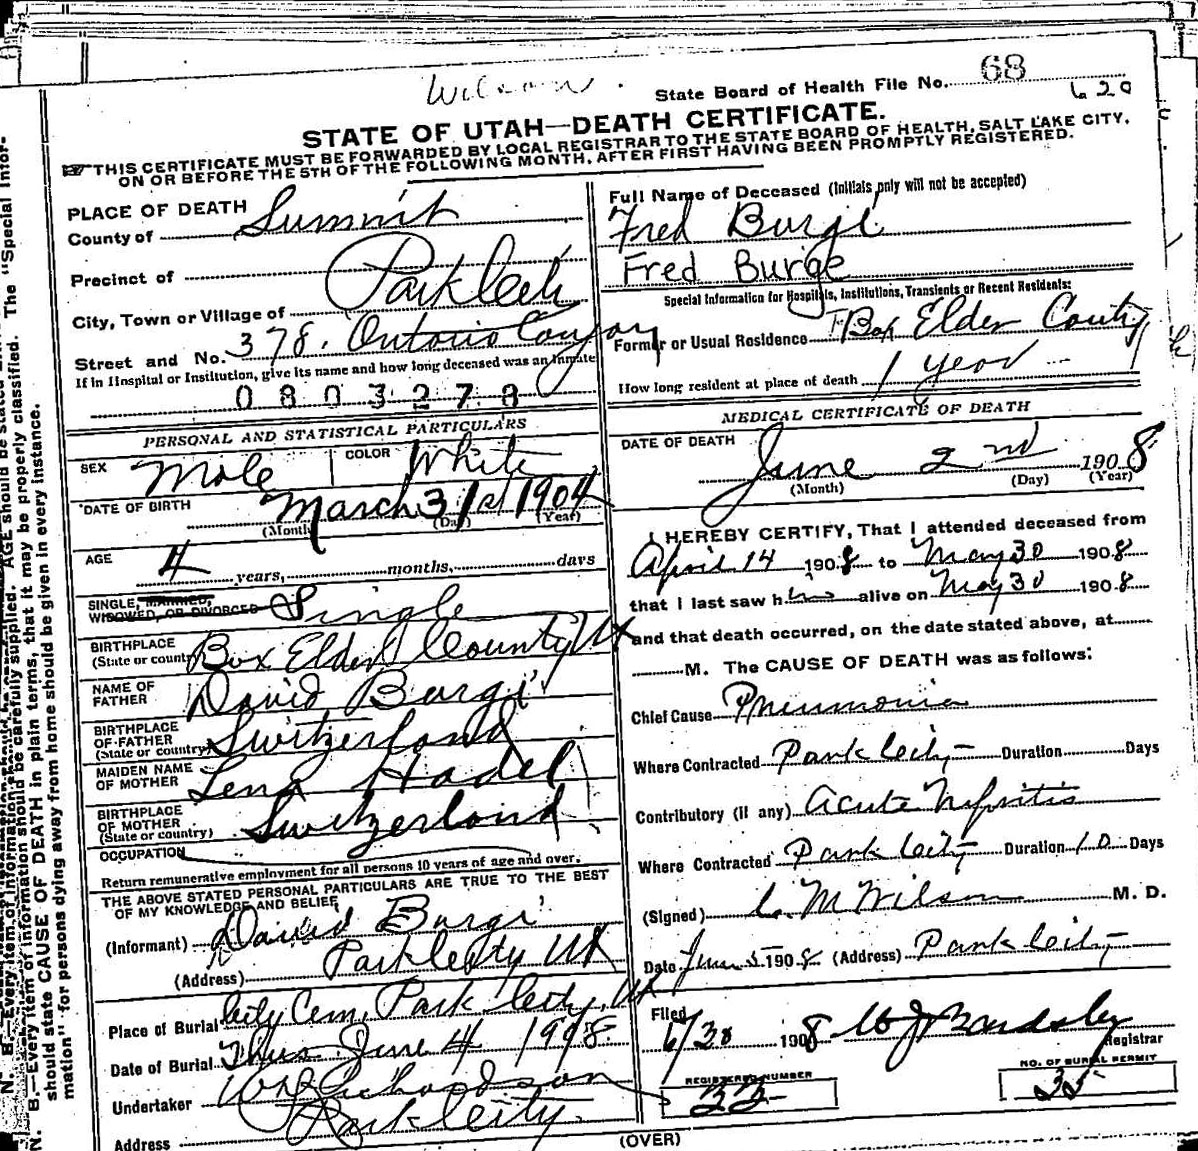 Wilson.
State Board of Health File No. 68
620
STATE OF UTAH—DEATH CERTIFICATE.
THIS CERTIFICATE MUST BE FORWARDED BY LOCAL REGISTRAR TO THE STATE BOARD OF HEALTH, SALT LAKE CITY,
ON OR BEFORE THE 5TH OF THE FOLLOWING MONTH, AFTER FIRST HAVING BEEN PROMPTLY REGISTERED.
PLACE OF DEATH
County of Summit
Precinct of
City, Town or Village of Park City
Street and No. 378. Ontario Canyon
If in Hospital or Institution, give its name and how long deceased was an Inmate
0803278
PERSONAL AND STATISTICAL PARTICULARS
SEX Male COLOR White
DATE OF BIRTH March 31st 1904
(Month) (Day) (Year)
AGE 4 years, months, days
SINGLE, MARRIED,
WIDOWED, OR DIVORCED Single
BIRTHPLACE
(State or country) Box Elder County Ut
NAME OF
FATHER David Burgi
BIRTHPLACE
OF FATHER
(State or country) Switzerland
MAIDEN NAME
OF MOTHER Lena Hadel
BIRTHPLACE
OF MOTHER
(State or country) Switzerland
OCCUPATION
Return remunerative employment for all persons 10 years of age and over.
THE ABOVE STATED PERSONAL PARTICULARS ARE TRUE TO THE BEST
OF MY KNOWLEDGE AND BELIEF
(Informant) David Burgi
(Address) Park City Ut
Place of Burial City Cem. Park City, Ut
Date of Burial Thus June 4 1908.
Undertaker Richardson
Address Park City.
Full Name of Deceased (Initials only will not be accepted)
Fred Burgi
Fred Burge
Special Information for Hospitals, Institutions, Transients or Recent Residents:
Former or Usual Residence Box Elder County
How long resident at place of death 1 year
MEDICAL CERTIFICATE OF DEATH
DATE OF DEATH
June 2nd 1908
(Month) (Day) (Year)
I HEREBY CERTIFY, That I attended deceased from
April 14 1908 to May 30 1908
that I last saw him alive on May 30 1908
and that death occurred, on the date stated above, at
M. The CAUSE OF DEATH was as follows:
Chief Cause Pneumonia
Where Contracted Park City Duration Days
Contributory (if any) Acute Nefritis
Where Contracted Park City Duration 10 Days
(Signed) C. M Wilson M. D.
Date June 5 1908 (Address) Park City
Filed
6/30 1908 W J Bardsley
Registrar
REGISTERED NUMBER NO. OF BURIAL PERMIT
33 35
(OVER)
N. B.—Every item of information should be carefully supplied. AGE should be stated
should state CAUSE OF DEATH in plain terms, that it may be properly classified. The "Special Infor-
mation" for persons dying away from home should be given in every instance.